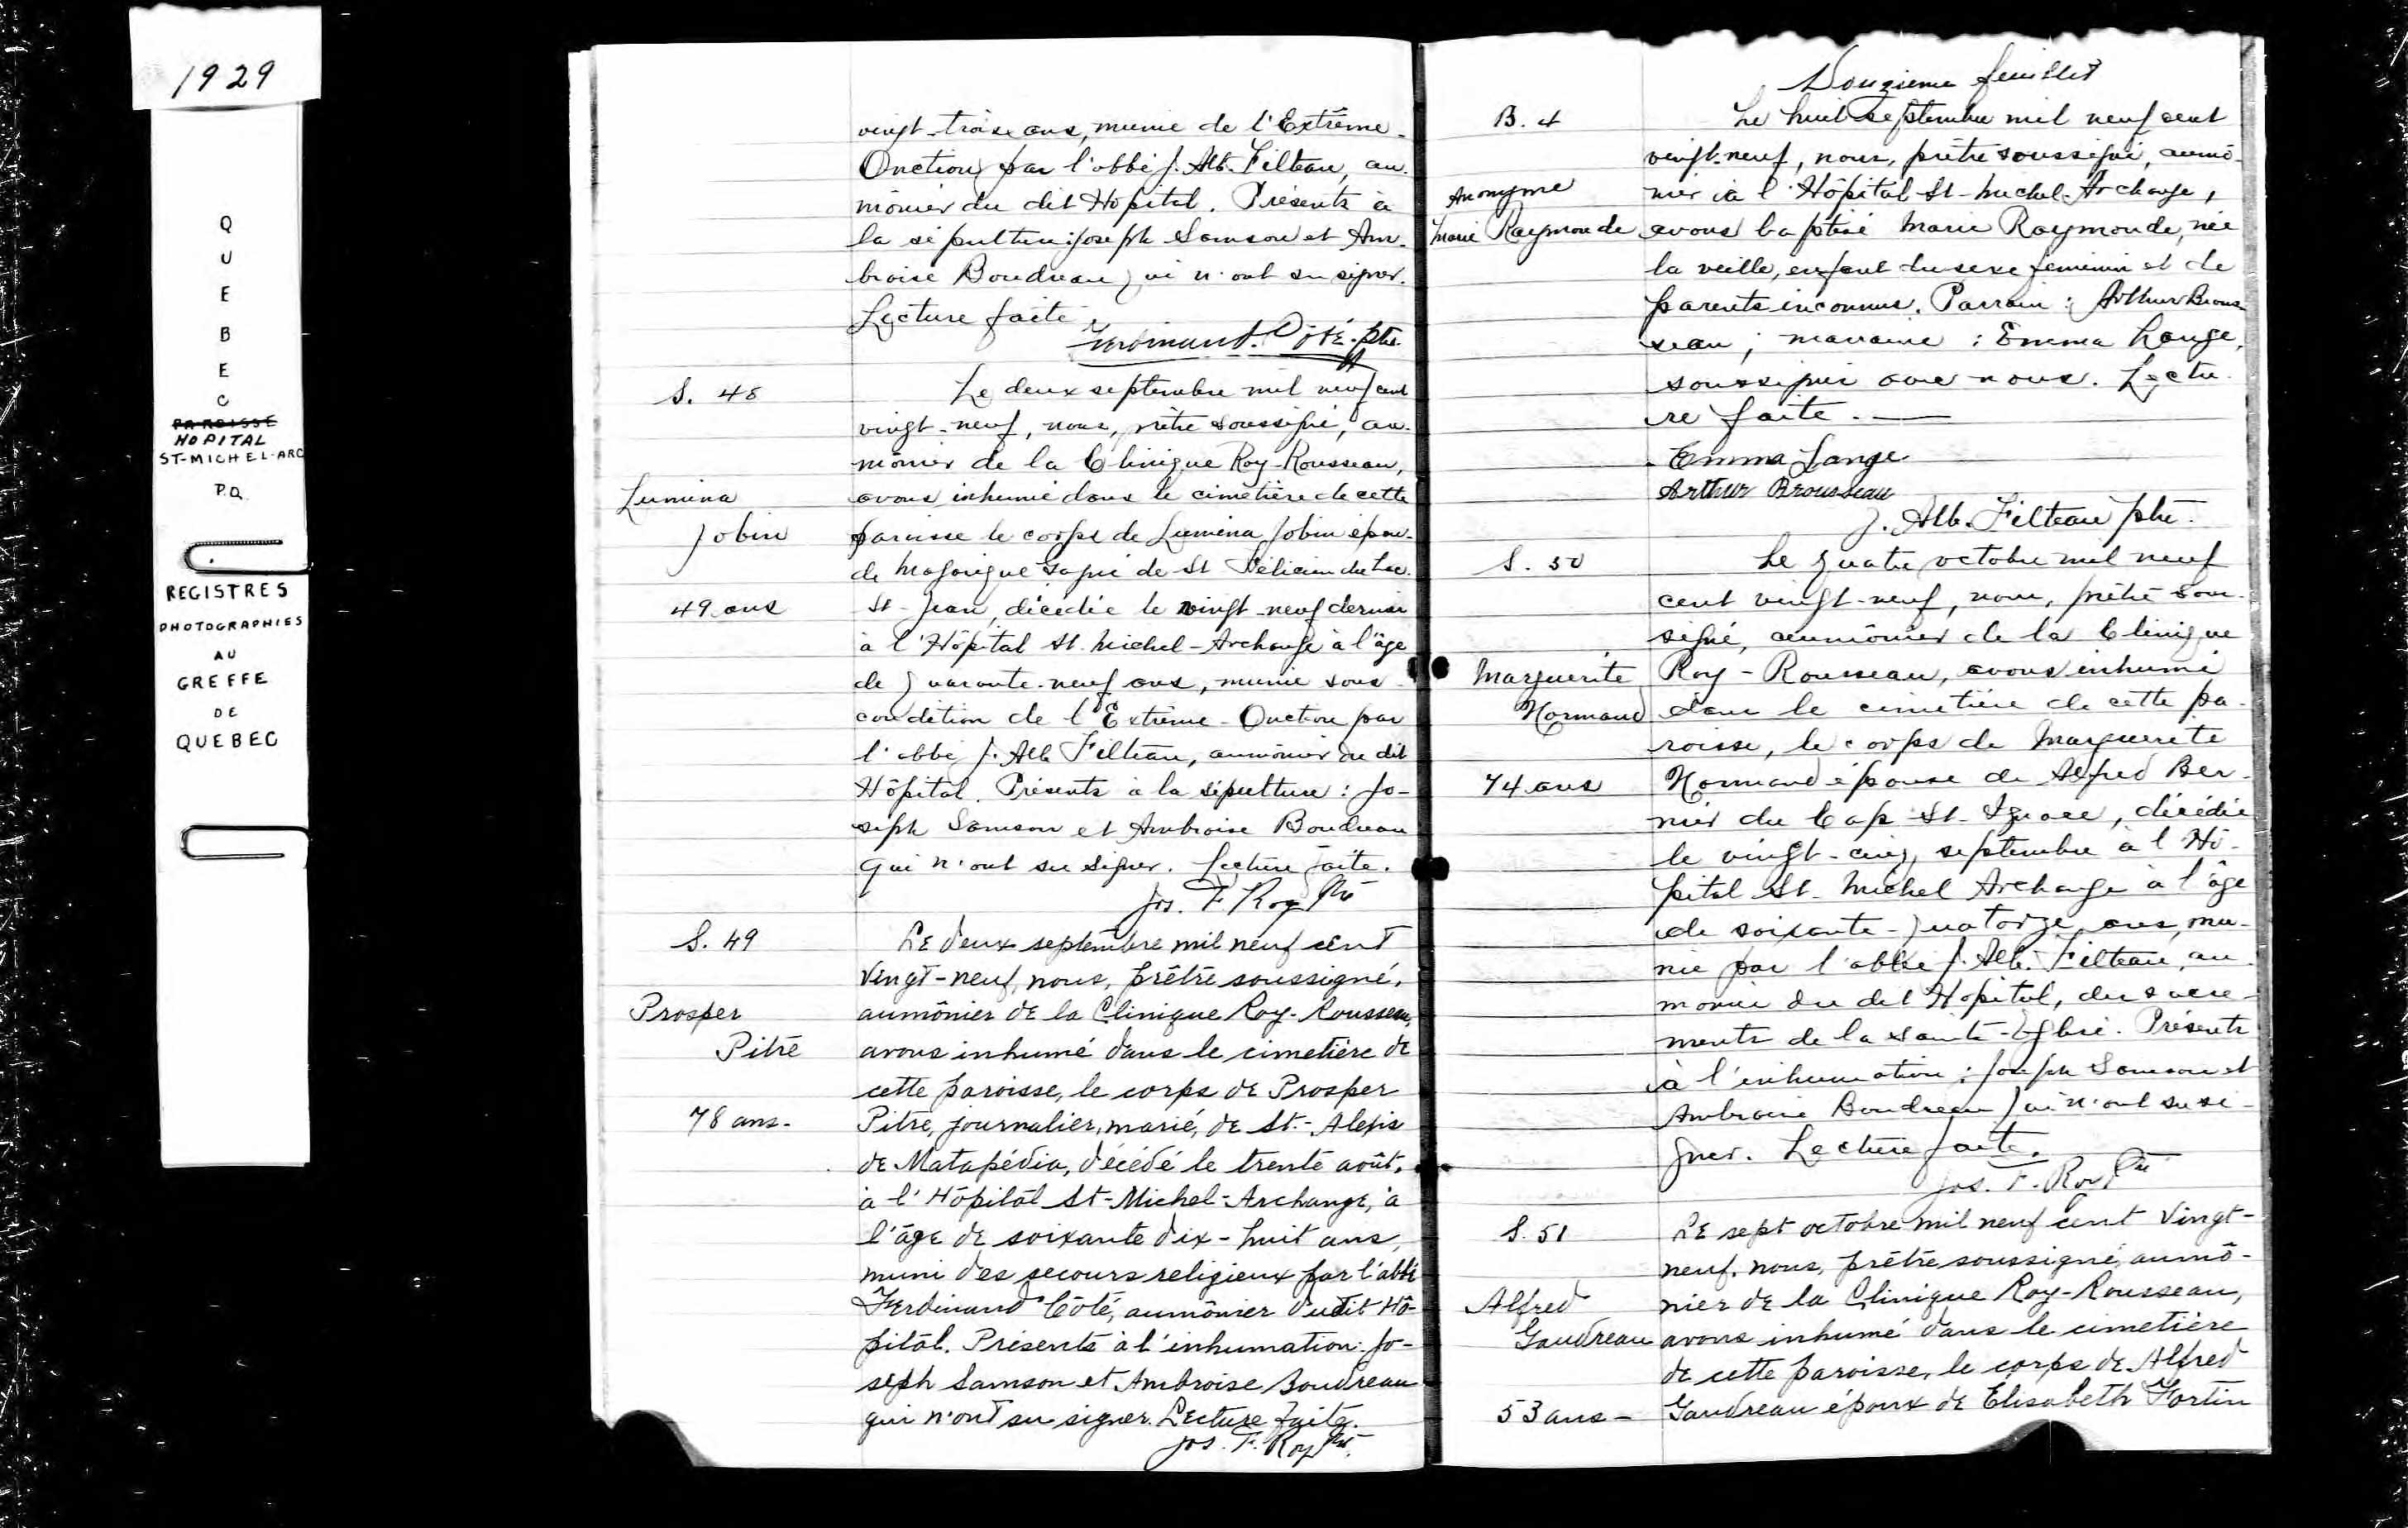 1929
QUEBEC
PAROISSE
HOPITAL
ST-MICHEL-ARC
P.Q.
REGISTRES
PHOTOGRAPHIES
AU
GREFFE
DE
QUEBEC
vingt-trois ans, munie de l'Extrême-
Onction par l'abbé J. Alb. Filteau, au-
mônier du dit Hôpital. Présents à
la sépulture: Joseph Samson et Am-
broise Boudreau qui n'ont su signer.
Lecture faite.
Ferdinand Côté, ptre.
S. 48
Lumina
Jobin
49 ans
Le deux septembre mil neuf cent
vingt-neuf, nous, prêtre soussigné, au-
mônier de la Clinique Roy-Rousseau,
avons inhumé dans le cimetière de cette
paroisse le corps de Lumina Jobin épou-
de Majorique de St Félicien du Lac
St-Jean, décédée le vingt-neuf dernier
à l'Hôpital St. Michel-Archange à l'âge
de quarante-neuf ans, munie sous
condition de l'Extrême-Onction par
l'abbé J. Alb Filteau, aumônier du dit
Hôpital. Présents à la sépulture: Jo-
seph Samson et Ambroise Boudreau
qui n'ont su signer. Lecture faite.
Jos. F. Roy Ptre
S. 49
Prosper
Pitre
78 ans-
Le deux septembre mil neuf cent
vingt-neuf, nous, prêtre soussigné,
aumônier de la Clinique Roy-Rousseau,
avons inhumé dans le cimetière de
cette paroisse, le corps de Prosper
Pitre, journalier, marié, de St.-Alexis
de Matapédia, décédé le trente août,
à l'Hôpital St-Michel-Archange, à
l'âge de soixante dix-huit ans,
muni des secours religieux par l'abbé
Ferdinand Côté, aumônier dudit Hô-
pital. Présents à l'inhumation: Jo-
seph Samson et Ambroise Boudreau
qui n'ont su signer. Lecture faite.
Jos. F. Roy Ptre.
Douzième feuillet
B. 4
Anonyme
Marie Raymonde
Le huit septembre mil neuf cent
vingt-neuf, nous, prêtre soussigné, aumô-
nier à l'Hôpital St-Michel-Archange,
avons baptisé Marie Raymonde, née
la veille, enfant du sexe féminin et de
parents inconnus. Parrain: Arthur Brous-
seau; marraine: Emma Lange,
soussignés avec nous. Lectu-
re faite.
Emma Lange
Arthur Brousseau
J. Alb. Filteau ptre.
S. 50
Marguerite
Normand
74 ans
Le quatre octobre mil neuf
cent vingt-neuf, nous, prêtre sous-
signé, aumônier de la Clinique
Roy-Rousseau, avons inhumé
dans le cimetière de cette pa-
roisse, le corps de Marguerite
Normand épouse de Alfred Ber-
nier du Cap St-Ignace, décédée
le vingt-cinq septembre à l'Hô-
pital St-Michel Archange à l'âge
de soixante-quatorze ans, mu-
nie par l'abbé J. Alb. Filteau, au-
monier du dit Hôpital, des sacre-
ments de la sainte-Eglise. Présents
à l'inhumation: Joseph Samson et
Ambroise Boudreau qui n'ont su si-
gner. Lecture faite.
Jos. F. Roy Ptre
S. 51
Alfred
Gaudreau
53 ans-
Le sept octobre mil neuf cent vingt-
neuf, nous, prêtre soussigné, aumô-
nier de la Clinique Roy-Rousseau,
avons inhumé dans le cimetière
de cette paroisse, le corps de Alfred
Gaudreau époux de Elisabeth Fortin